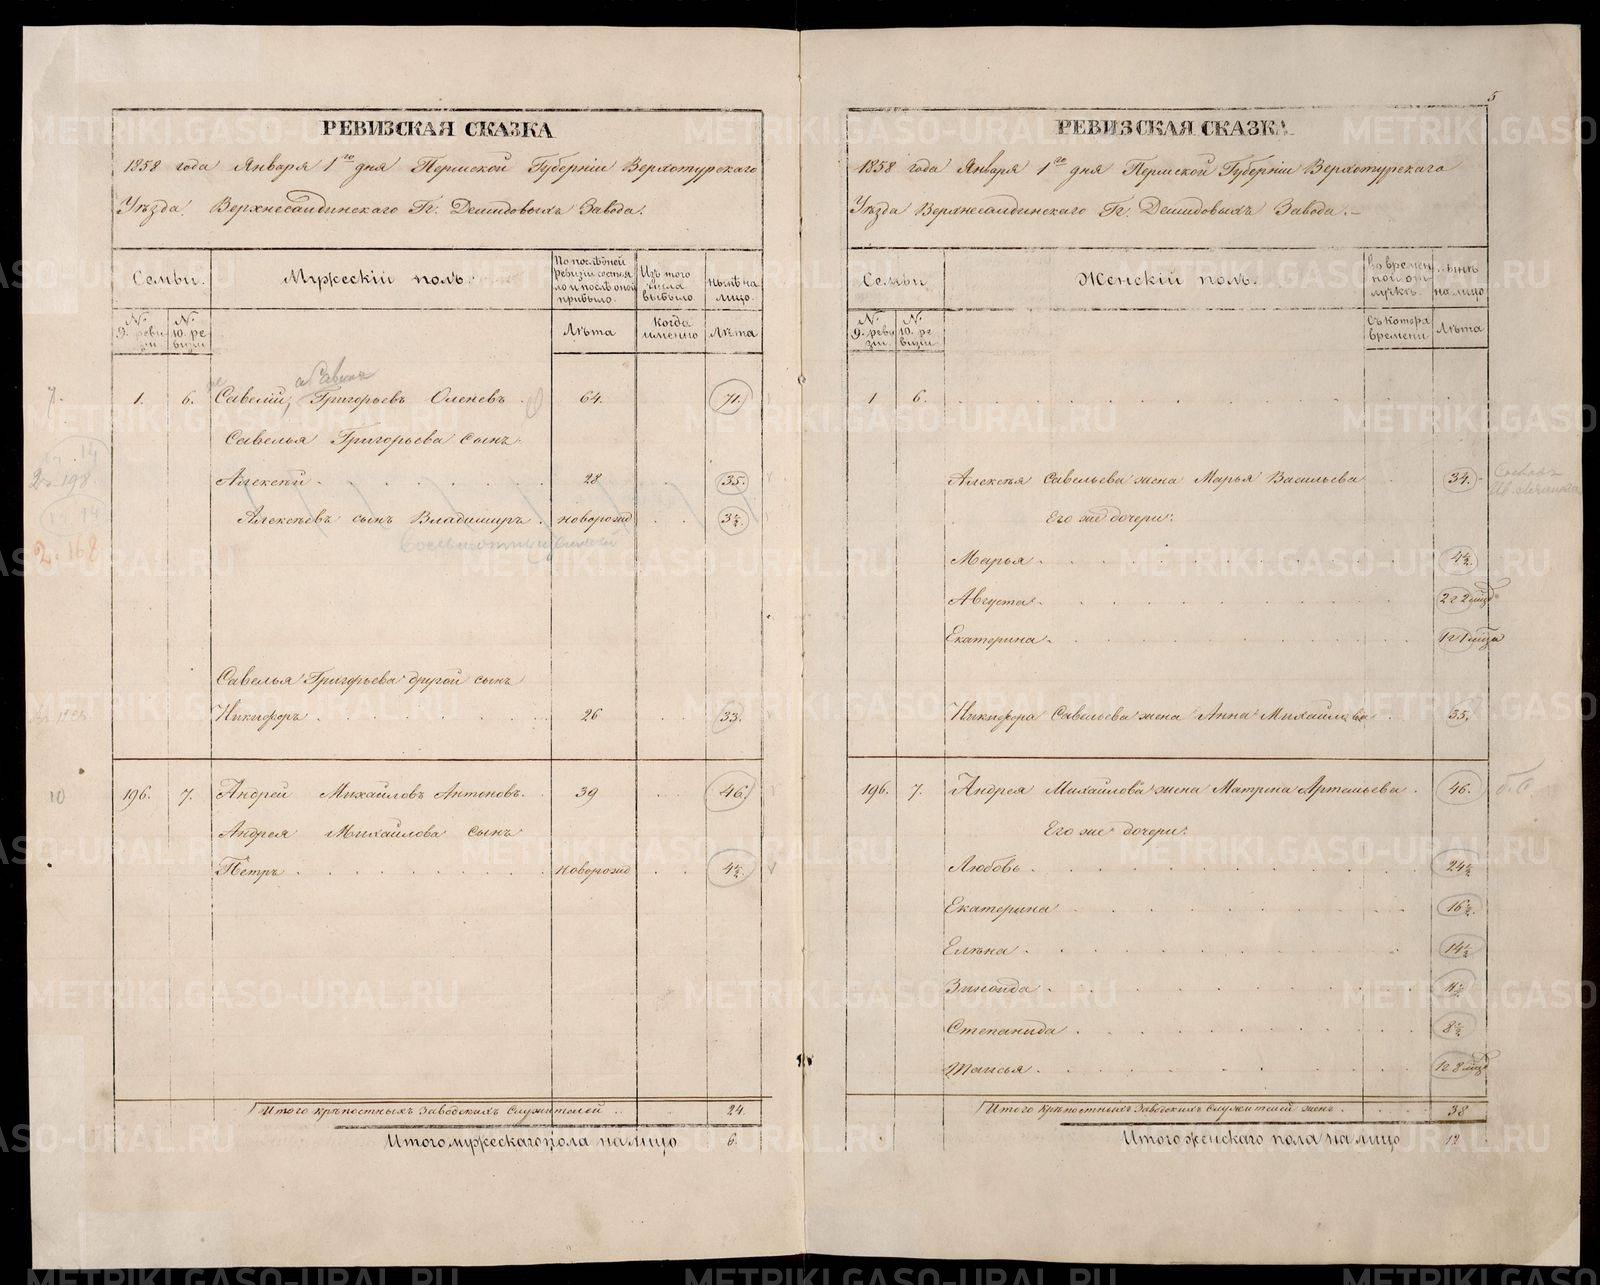 РЕВИЗСКАЯ СКАЗКА
1858 года Января 1го дня Пермской Губерніи Верхотурскаго
Уѣзда Верхнесалдинскаго Гг. Демидовыхъ Завода.
Семьи.
Мужескій полъ.
По послѣдней ревизіи состояло и послѣ оной прибыло.
Изъ того числа выбыло
Нынѣ на лицо.
№ 9. ревизіи
№ 10. ревизіи
Лѣта
Когда именно
Лѣта
1. 6. Савелій Григорьевъ Оленевъ 64. 71.
Савелья Григорьева сынъ
Алексѣй 28 35.
Алексѣевъ сынъ Владимиръ новорожд 3½
Савелья Григорьева другой сынъ
Никифоръ 26 33.
196. 7. Андрей Михайловъ Антоновъ 39 46.
Андрея Михайлова сынъ
Петръ новорожд 4½
Итого крѣпостныхъ заводскихъ служителей 24.
Итого мужескаго пола на лицо 6.
5
РЕВИЗСКАЯ СКАЗКА
1858 года Января 1го дня Пермской Губерніи Верхотурскаго
Уѣзда Верхнесалдинскаго Гг. Демидовыхъ Завода.
Семьи.
Женскій полъ.
Во временной отлучкѣ.
Нынѣ на лицо
№ 9. ревизіи.
№ 10. ревизіи.
Съ котора времени
Лѣта
1 6.
Алексѣя Савельева жена Марья Васильева 34.
Его же дочери:
Марья 4½
Августа 2г 2мѣс
Екатерина 1г 1мѣсца
Никифора Савельева жена Анна Михайлова 35.
196. 7. Андрея Михайлова жена Матрена Артемьева 46.
Его же дочери:
Любовь 24½
Екатерина 16½
Елѣна 14½
Зиноида 11½
Степанида 8½
Таисья 1г 8мѣс
Итого крѣпостныхъ заводскихъ служителей женъ 38
Итого женскаго пола на лицо 12
METRIKI.GASO-URAL.RU